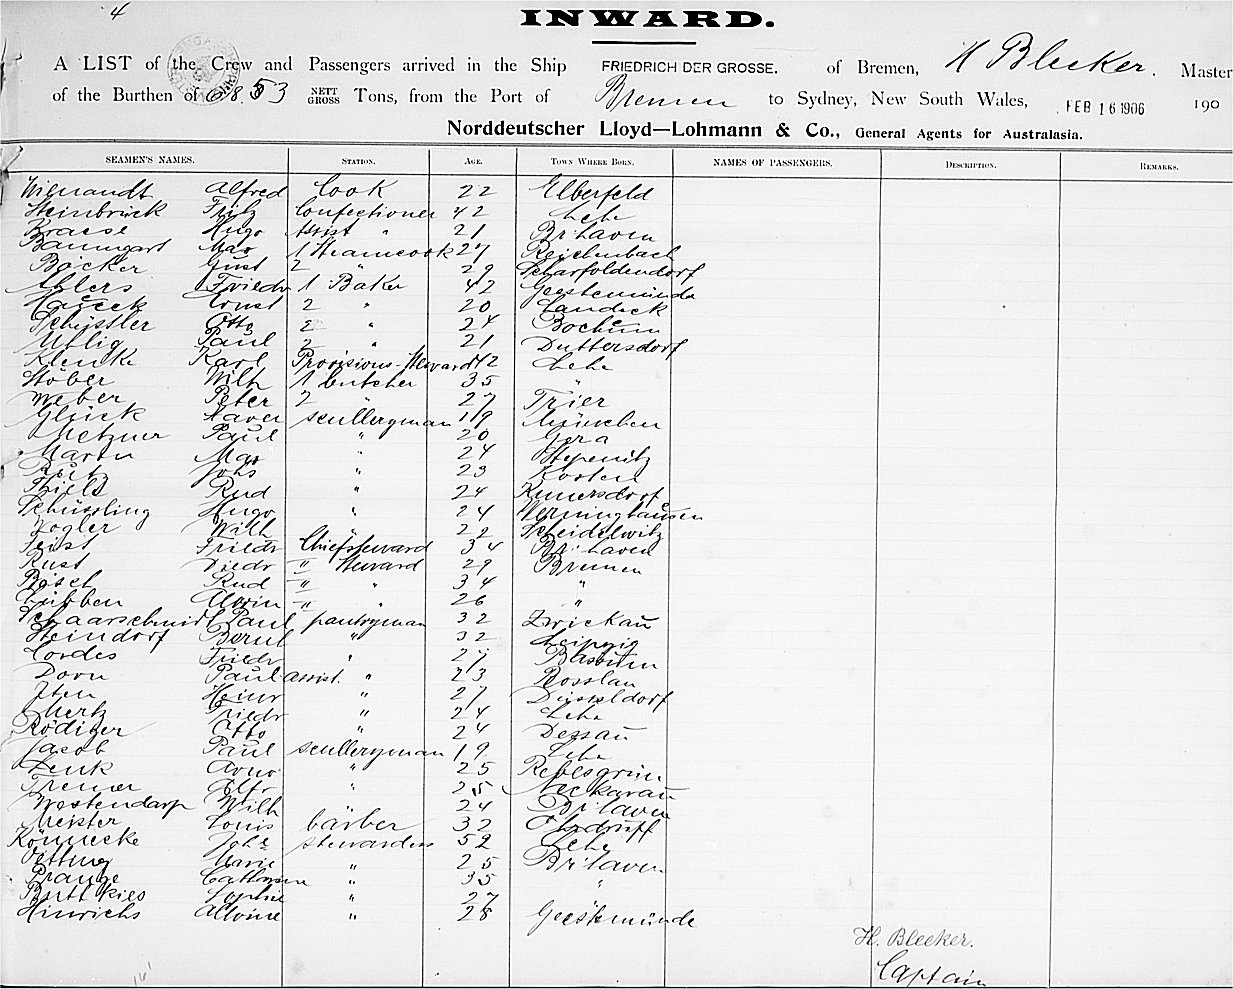 4
INWARD.
A LIST of the Crew and Passengers arrived in the Ship FRIEDRICH DER GROSSE. of Bremen, H Bleeker. Master
of the Burthen of 68.53 NETT GROSS Tons, from the Port of Bremen to Sydney, New South Wales, FEB 16 1906 190
Norddeutscher Lloyd—Lohmann & Co., General Agents for Australasia.
SEAMEN'S NAMES. STATION. AGE. TOWN WHERE BORN. NAMES OF PASSENGERS. DESCRIPTION. REMARKS.
Wienandt Alfred Cook 22 Elberfeld
Steinbrück Fritz Confectioner 42 Lehe
Kraese Hugo Assist " 21 Brhaven
Baumgart Max 1 Steamcook 27 Reichenbach
Bäcker Gust 2 " 29 Scharfoldendorf
Ahlers Friedr 1 Baker 42 Geestemünde
Ernst 2 " 20 Landeck
Schüssler Otto 2 " 24 Bochum
Uhlig Paul 2 " 21 Duttersdorf
Klenke Karl Provisions-Steward 42 Lehe
Stöber Wilh 1 butcher 35 "
Weber Peter 2 " 27 Trier
Glück Xaver sculleryman 19 München
Metzner Paul " 20 Gera
Martin Max " 24 Stepenitz
Johs " 23 Kosten
Thiele Rud " 24 Kunersdorf
Schüssling Hugo " 24 Werninghausen
Vogler Wilh " 22 Scheidelwitz
Feist Friedr Chiefsteward 34 Brhaven
Rust Diedr " Steward 29 Bremen
Bösch Rud " " 34 "
Lübben Alwin " " 26 "
Schaarschmidt Paul pantryman 32 Zwickau
Steindorf Bernh " 32 Leipzig
Cordes Friedr " 27 Bassum
Dorn Paul assist. " 23 Rosslau
Iten Heinr " 27 Düsseldorf
Mertz Friedr " 24 Lehe
Rödiger Otto " 24 Dessau
Jacob Paul sculleryman 19 Lehe
Zenk Arno " 25 Reblesgrün
Tremer Alfr " 25 Neckarau
Westendarp Wilh " 24 Brhaven
Meister Louis barber 32 Ohrdruff
Könnecke Johe stewardess 52 Lehe
Oetting Marie " 25 Brhaven
Prange Catharina " 35 "
Buttkies Sophie " 27
Hinrichs Alwine " 28 Geestemünde
H. Bleeker.
Captain